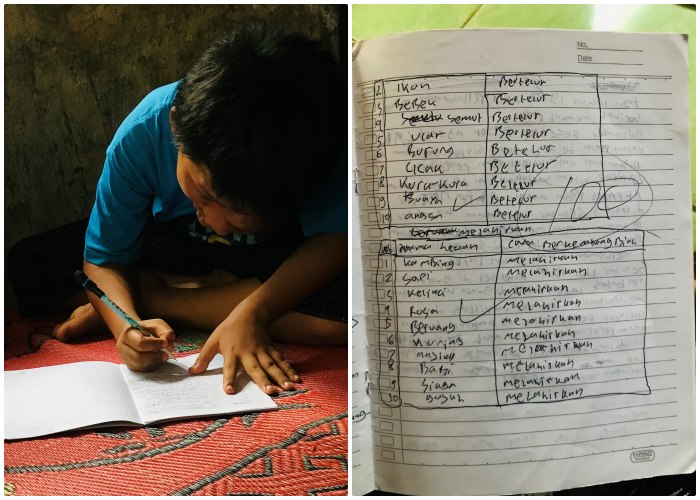 No.
Date
2 Ikan Bertelur
3 Bebek Bertelur
4 semut Bertelur
5 ular Bertelur
6 Burung Betelur
7 cicak Betelur
8 Kura-kura Betelur
9 Buaya Betelur
10 angsa Betelur
100
melahirkan
No nama hewan cara Berkembang Biak
1 kambing melahirkan
2 sapi melahirkan
3 kelinci melahirkan
4 Rusa melahirkan
5 Beruang melahirkan
6 melahirkan
7 anjing melahirkan
8 melahirkan
9 Singa melahirkan
10 gajah melahirkan
PAPERLINE